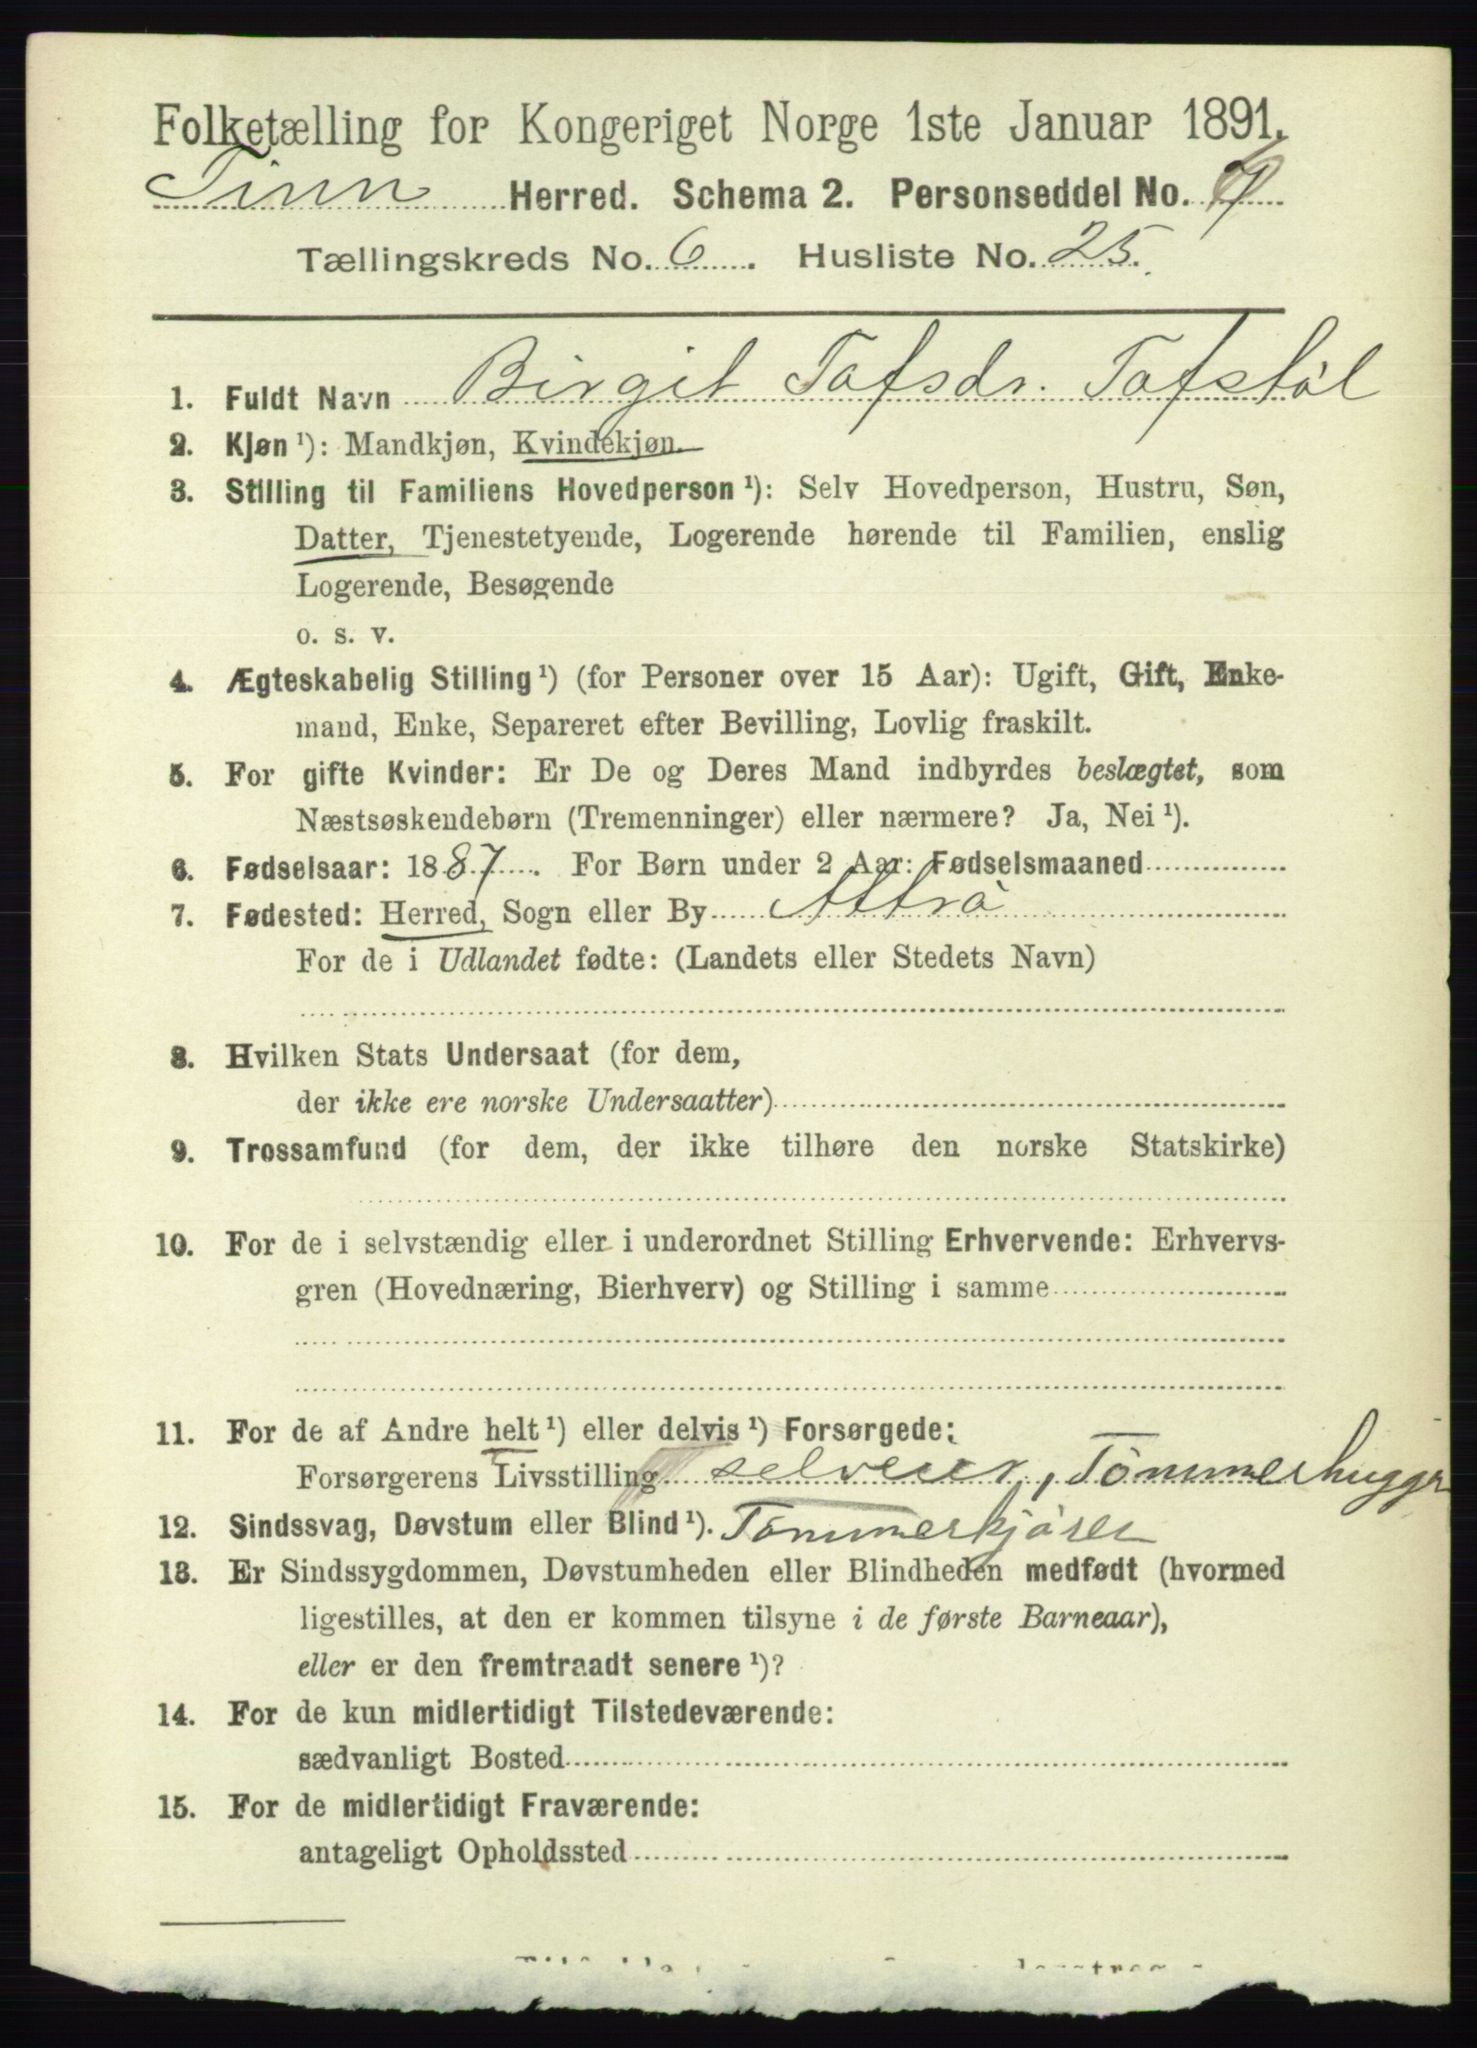 Folketælling for Kongeriget Norge 1ste Januar 1891.
Tinn Herred. Schema 2. Personseddel No.
Tællingskreds No. 6. Husliste No. 25.
1. Fuldt Navn Birgit Tofsdr. Tofstöl
2. Kjøn ¹): Mandkjøn, Kvindekjøn.
3. Stilling til Familiens Hovedperson ¹): Selv Hovedperson, Hustru, Søn,
Datter, Tjenestetyende, Logerende hørende til Familien, enslig
Logerende, Besøgende
o. s. v.
4. Ægteskabelig Stilling ¹) (for Personer over 15 Aar): Ugift, Gift, Enke-
mand, Enke, Separeret efter Bevilling, Lovlig fraskilt.
5. For gifte Kvinder: Er De og Deres Mand indbyrdes beslægtet, som
Næstsøskendebørn (Tremenninger) eller nærmere? Ja, Nei ¹).
6. Fødselsaar: 1887. For Børn under 2 Aar: Fødselsmaaned
7. Fødested: Herred, Sogn eller By Attrö
For de i Udlandet fødte: (Landets eller Stedets Navn)
8. Hvilken Stats Undersaat (for dem,
der ikke ere norske Undersaatter)
9. Trossamfund (for dem, der ikke tilhøre den norske Statskirke)
10. For de i selvstændig eller i underordnet Stilling Erhvervende: Erhvervs-
gren (Hovednæring, Bierhverv) og Stilling i samme
11. For de af Andre helt ¹) eller delvis ¹) Forsørgede:
Forsørgerens Livsstilling selveier, Tömmerhugger
12. Sindssvag, Døvstum eller Blind ¹). Tömmerkjörer
13. Er Sindssygdommen, Døvstumheden eller Blindheden medfødt (hvormed
ligestilles, at den er kommen tilsyne i de første Barneaar),
eller er den fremtraadt senere ¹)?
14. For de kun midlertidigt Tilstedeværende:
sædvanligt Bosted
15. For de midlertidigt Fraværende:
antageligt Opholdssted